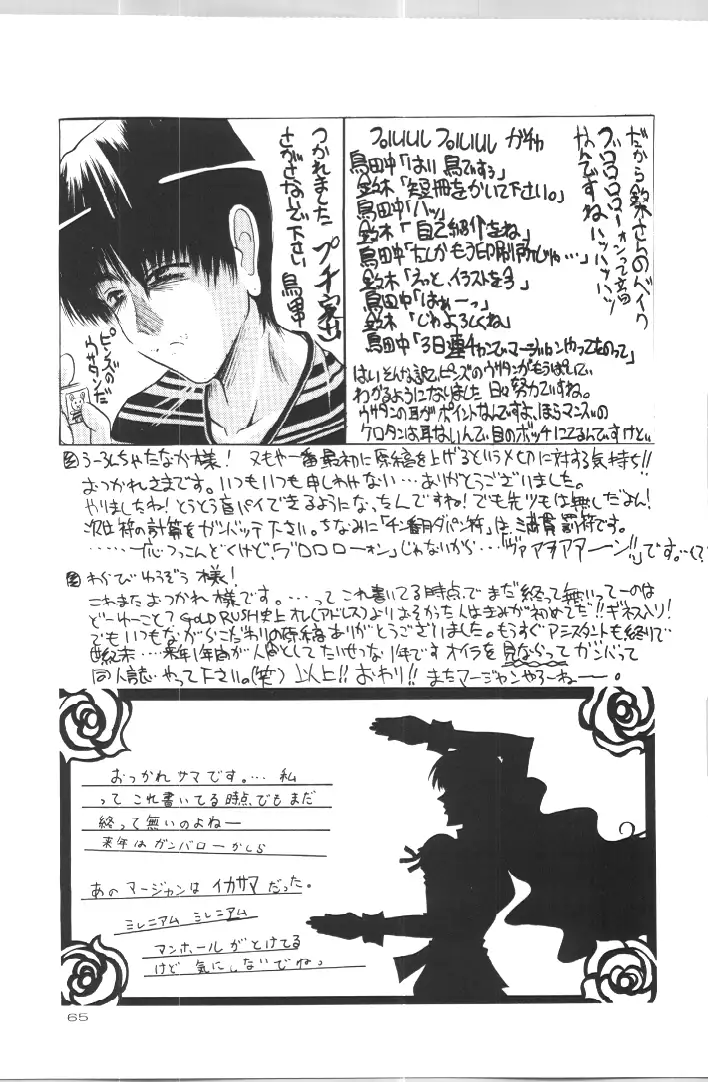 だから鈴木さんのバイク
ブロロロローォンって音
なんですねハッハッハッ
プルルルル プルルルル ガチャ
鳥田中「はい 鳥ですう」
鈴木「短冊をかいて下さい。」
鳥田中「ハッ」
鈴木「自己紹介をね」
鳥田中「たしかもう印刷所じゃ…」
鈴木「えっと、イラストを今」
鳥田中「はぁーっ」
鈴木「じゃよろしくね」
鳥田中「3日連チャンでマージャンやってたのって」
はいそんな訳で、ピンズのウサタンがもうぱいで
わかるようになりました 日々努力ですね。
ウサタンの耳がポイントなんですよ、ほらマンズの
ケロタンは耳ないんで、目のボッチにてるんですけど、、
つかれました プチ家出
さがさないで下さい 鳥田中
ピンズの
ウサタンだ
うーろんちゃたなか様! 又もや一番最初に原稿を上げるという〆切に対する気持ち!!
おつかれさまです。いつもいつも申しわけない…ありがとうございました。
やりましたね!とうとう盲パイできるようになったんですね!でも先ヅモは無しだよん!
次は符の計算をガンバッテ下さい。ちなみに「チン番月ダパン符」は満貫罰符です。
……すでにつっこんどくけど、「ブロロローォン」じゃないから…「ヴァアヲアアーン!!」です。
わかびゆうぞう様!
これまたおつかれ様です。…って これ書いてる時点で まだ終って無いってーのは
どーゆーこと? GOLD RUSH史上オレ(アドレス)よりおそかった人はきみが初めてだ!!ギネス入り!
でもいつもながらこだわりの原稿ありがとうございました。もうすぐアシスタントも終りで
世紀末…来年1年間が人間としてたいせつな1年です オイラを見ならって ガンバって
同人誌 やって下さい。(笑) 以上!! おわり!! またマージャンやろーねーー。
おつかれサマです。… 私
って これ書いてる時点でもまだ
終って無いのよねー
来年は ガンバローかしら
あの マージャンは イカサマ だった。
ミレニアム ミレニアム
マンホール がとけてる
けど 気にしないでねっ
65